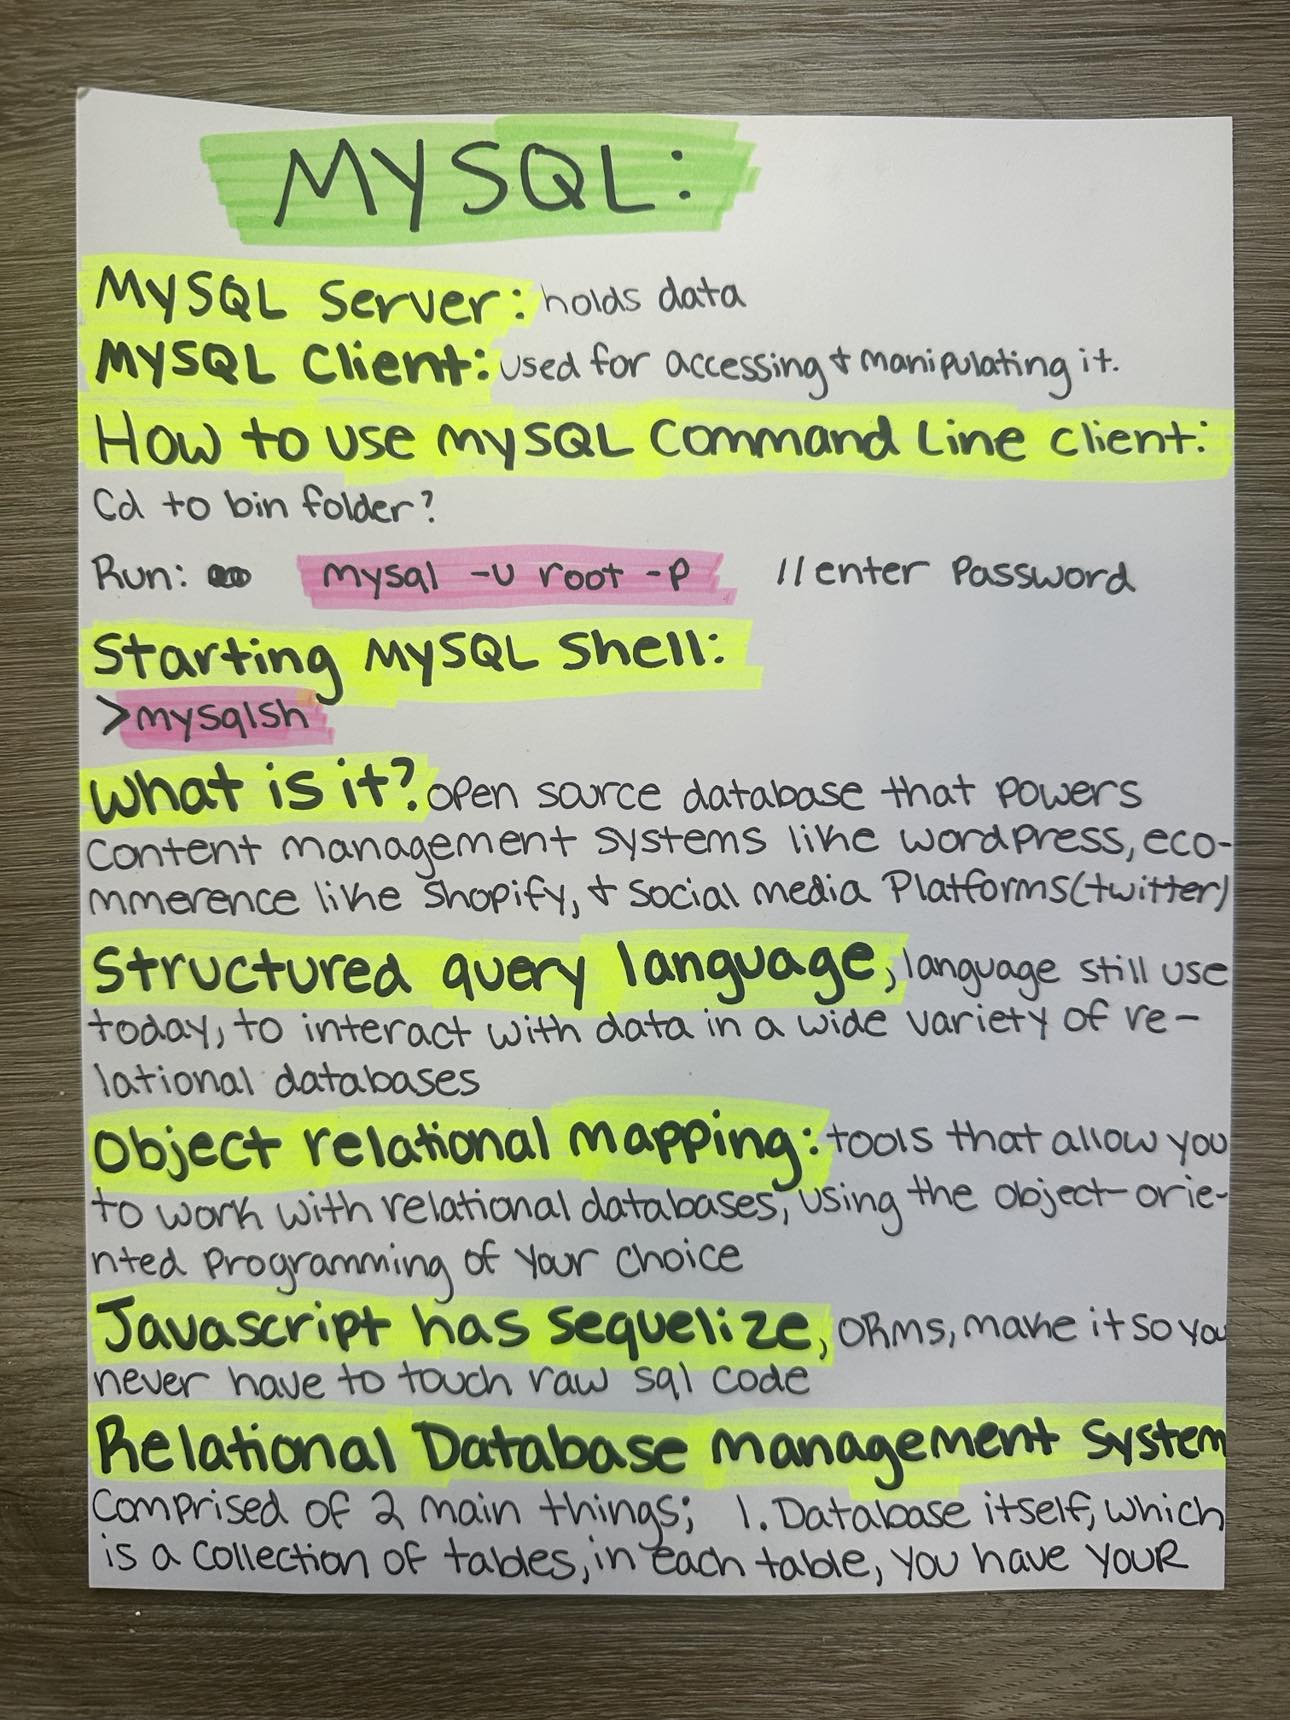 MYSQL:
MySQL Server: holds data
MYSQL Client: used for accessing & manipulating it.
How to use mySQL Command Line Client:
Cd to bin folder?
Run: mysql -u root -p //enter Password
Starting MySQL Shell:
>mysqlsh
What is it? open source database that powers
content management systems like wordpress, eco-
mmerence like Shopify, & social media Platforms(twitter)
Structured query language, language still use
today, to interact with data in a wide variety of re-
lational databases
Object relational mapping: tools that allow you
to work with relational databases, using the object-orie-
nted Programming of your choice
Javascript has sequelize, ORMs, make it so you
never have to touch raw sql code
Relational Database management System
Comprised of 2 main things; 1. Database itself, which
is a collection of tables, in each table, you have your